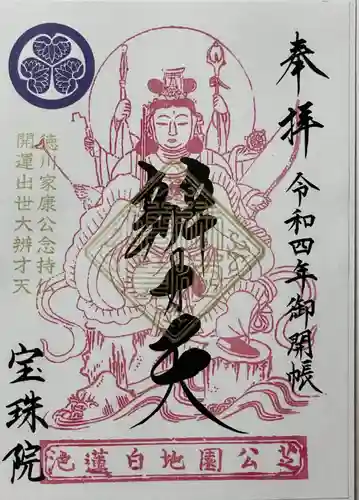 奉拝
令和四年御開帳
辨才天
徳川家康公念持仏
開運出世大辨才天
宝珠院
芝公園地白蓮池